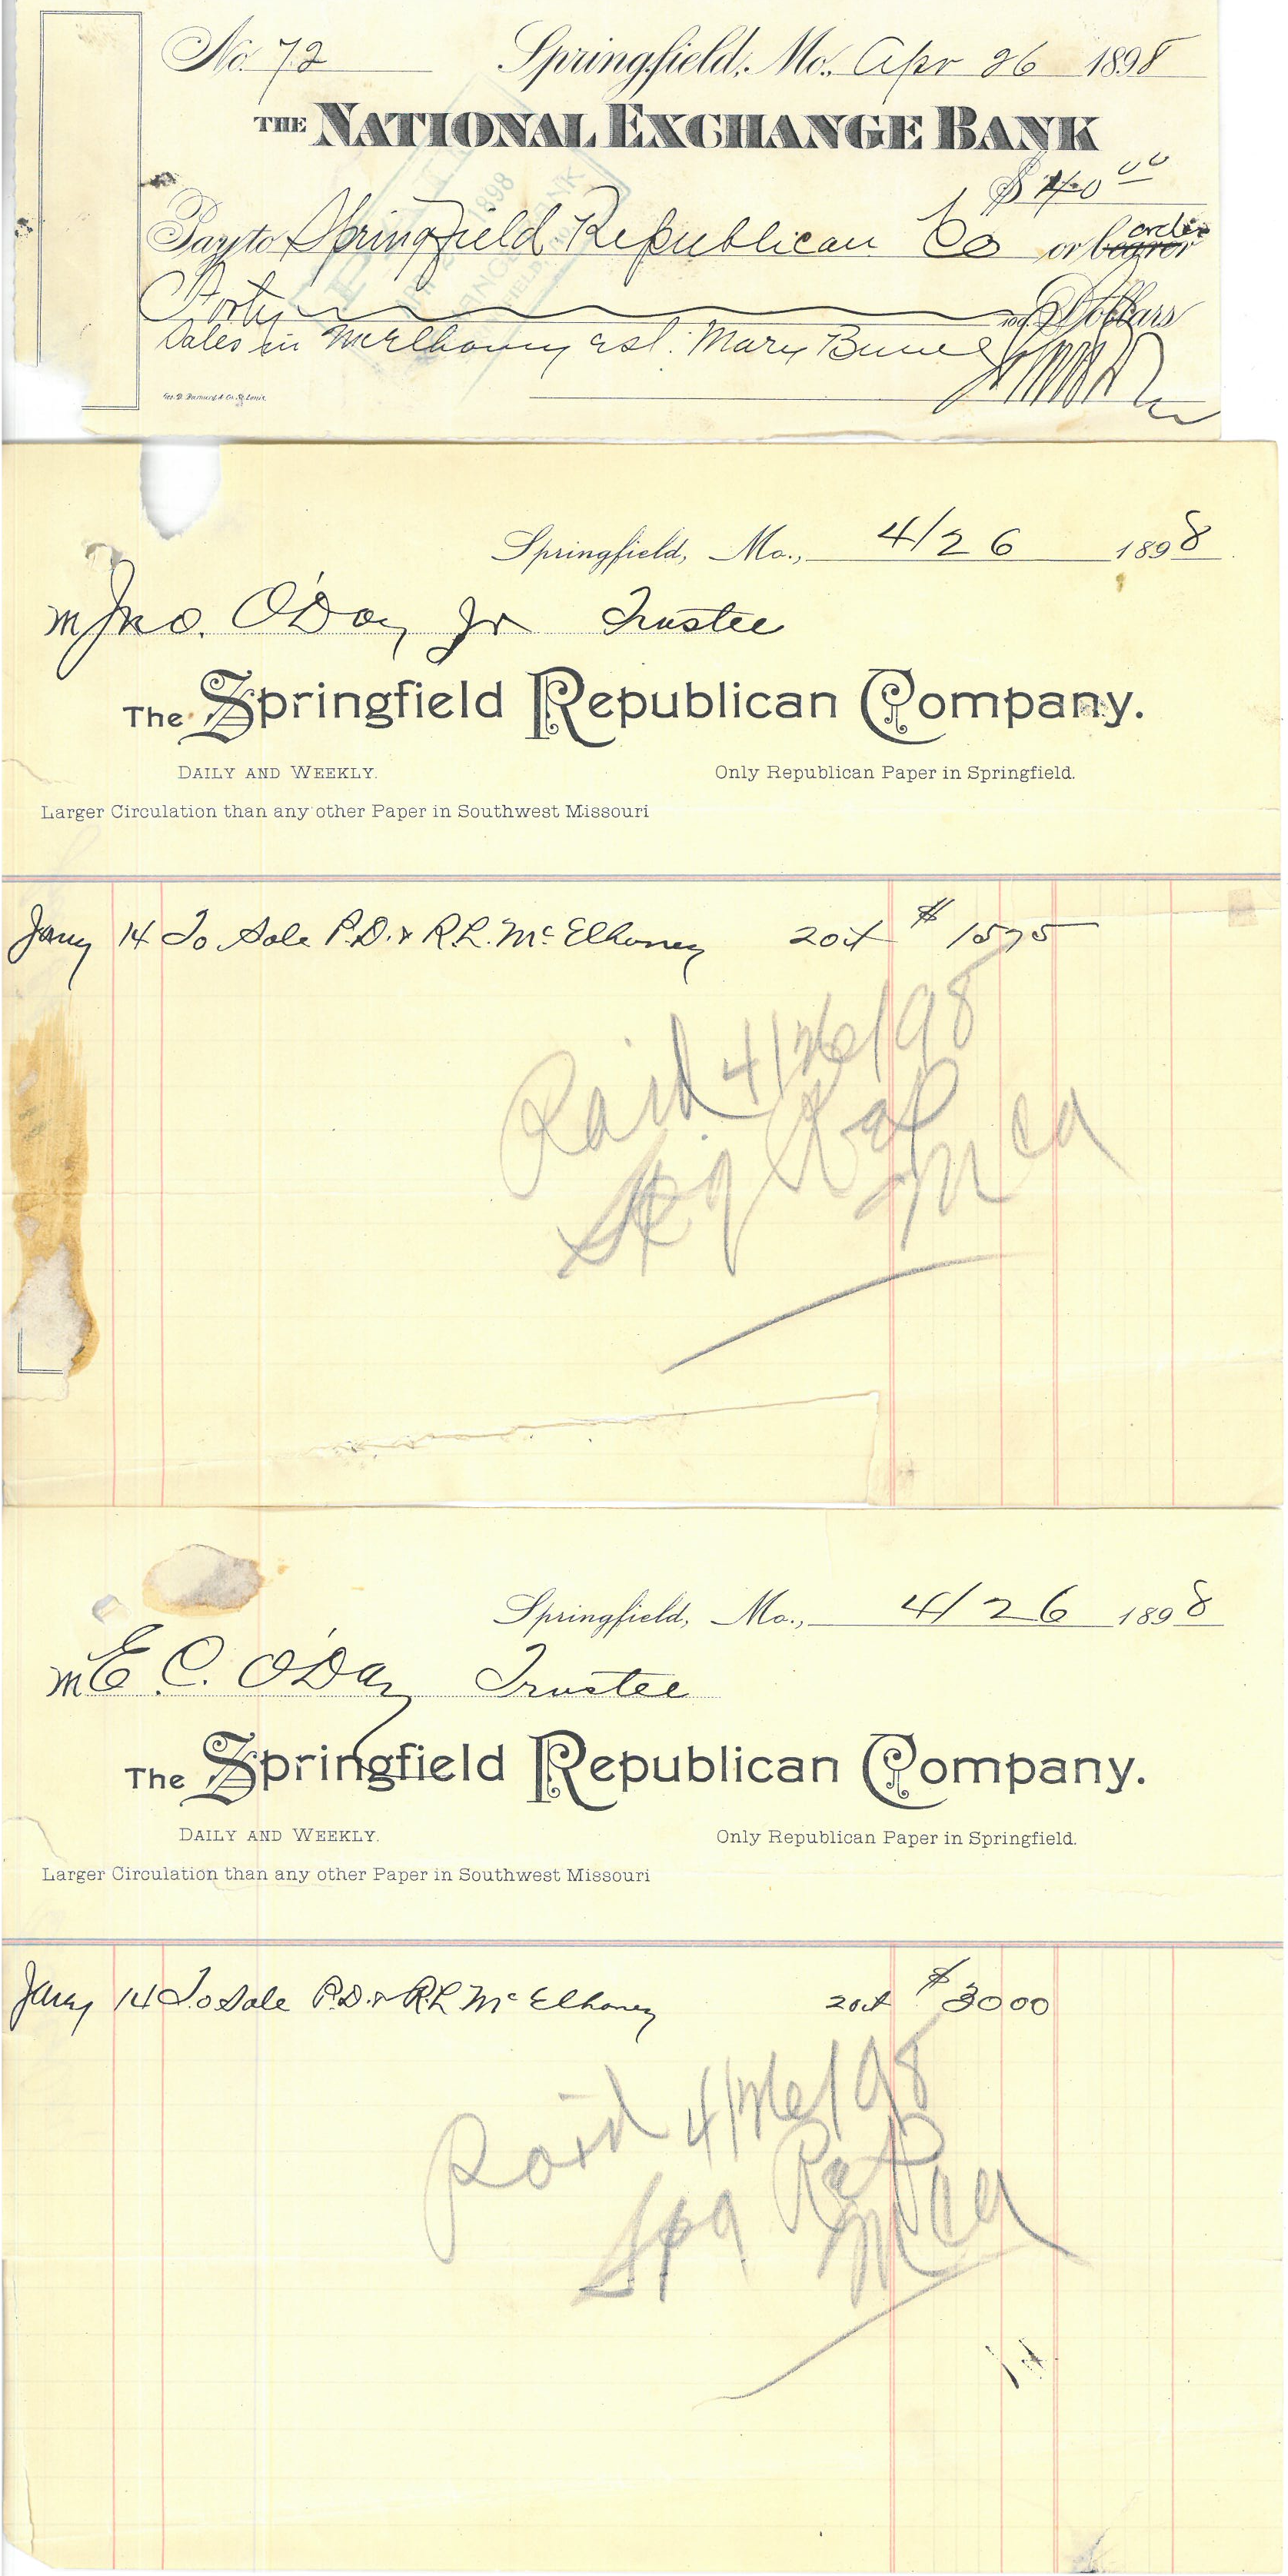 No. 72 Springfield, Mo., Apr 26 1898
THE NATIONAL EXCHANGE BANK
$ 40 00
Pay to Springfield Republican Co or bearer order
Forty Dollars
Sales in McElhaney est. Mary
Geo. D. Barnard & Co. St. Louis
Springfield, Mo., 4/26 1898
M Jno. O'Day Jr Trustee
The Springfield Republican Company.
DAILY AND WEEKLY. Only Republican Paper in Springfield.
Larger Circulation than any other Paper in Southwest Missouri
Jany 14 To Sale P.D. & R.L. McElhaney 20it $ 1575
Paid 4/26/98
Spg Rep
Springfield, Mo., 4/26 1898
M E. C. O'Day Trustee
The Springfield Republican Company.
DAILY AND WEEKLY. Only Republican Paper in Springfield.
Larger Circulation than any other Paper in Southwest Missouri
Jany 14 To Sale P.D. & R L McElhaney 20it $ 3000
Paid 4/26/98
Spg Rep